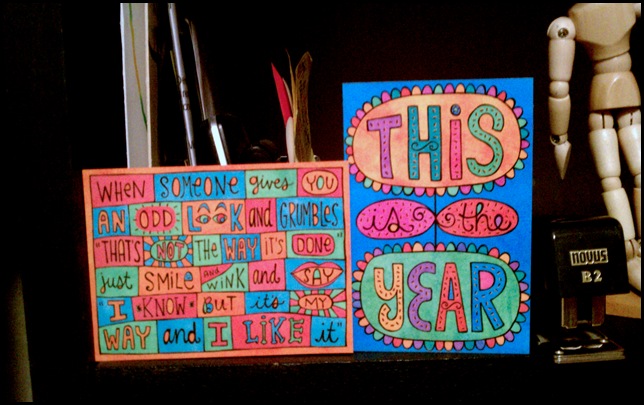 WHEN SOMEONE gives YOU
AN ODD LOOK and GRUMBLES
"THATS NOT THE WAY IT'S DONE"
just SMILE and WINK and SAY
"I *KNOW* BUT it's MY
WAY and I LiKE it"
THiS
is the
YEAR
novus
B2